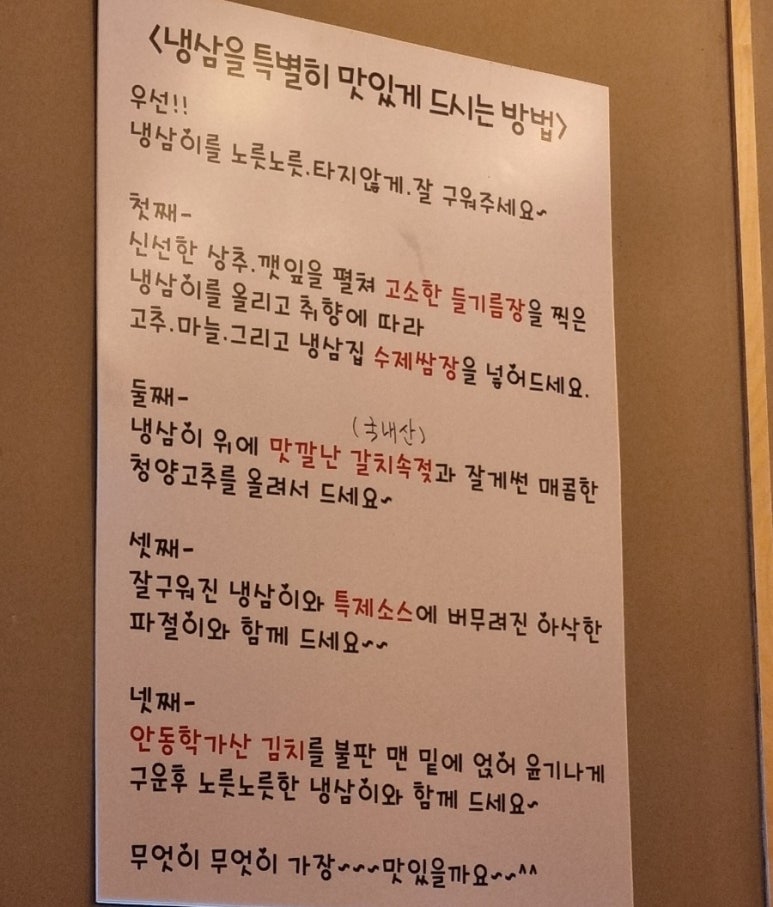 <냉삼을 특별히 맛있게 드시는 방법>
우선!!
냉삼이를 노릇노릇.타지않게.잘 구워주세요~
첫째-
신선한 상추.깻잎을 펼쳐 고소한 들기름장을 찍은
냉삼이를 올리고 취향에 따라
고추.마늘.그리고 냉삼집 수제쌈장을 넣어드세요.
둘째-
(국내산)
냉삼이 위에 맛깔난 갈치속젖과 잘게썬 매콤한
청양고추를 올려서 드세요~
셋째-
잘구워진 냉삼이와 특제소스에 버무려진 아삭한
파절이와 함께 드세요~~
넷째-
안동학가산 김치를 불판 맨 밑에 얹어 윤기나게
구운후 노릇노릇한 냉삼이와 함께 드세요~
무엇이 무엇이 가장~~~맛있을까요~~^^